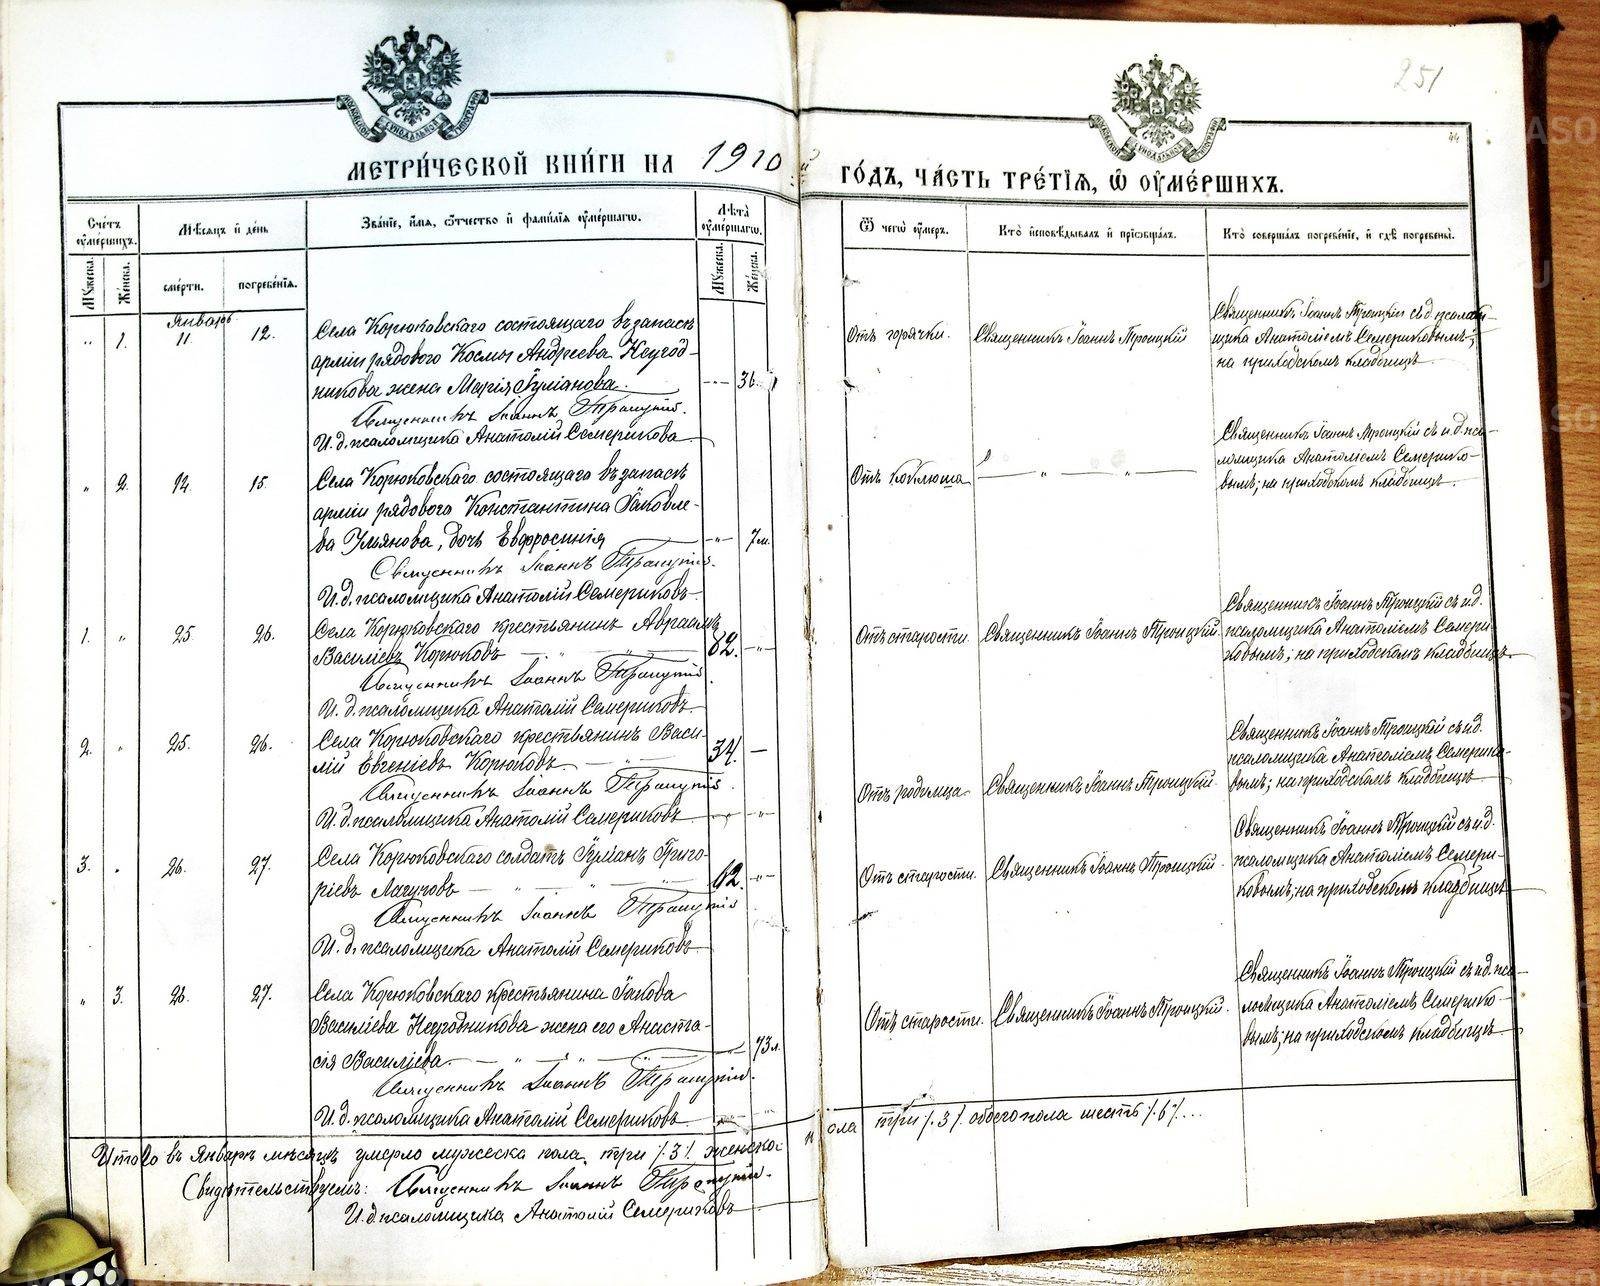 251
44
МЕТРИ́ЧЕСКОЙ КНИ́ГИ НА 1910й ГО́ДЪ, ЧА́СТЬ ТРЕ́ТІѦ, Ѡ ОУМЕ́РШИХЪ.
Сче́тъ оуме́ршихъ.
Мꙋжеска.
Же́нска.
Мѣ́сѧцъ и де́нь
сме́рти.
погребе́нїѧ.
Зва́нїе, и́мѧ, ѻ́тчество и фами́лїѧ оуме́ршагѡ.
Лѣ́та оуме́ршагѡ.
Мꙋжеска.
Же́нска.
Ѿ чегѡ̀ оу́меръ.
Кто̀ и҆сповѣ́дывалъ и прїѡбща́лъ.
Кто̀ соверша́лъ погребе́нїе, и гдѣ̀ погребены̀.
Январь
" 1. 11 12.
Села Корюковскаго состоящаго въ запасѣ
арміи рядового Космы Андреева Неугод-
никова жена Марія Іуліанова. 36.
Священникъ Іоаннъ Троицкій.
И. д. псаломщика Анатолій Семерикова
Отъ горячки. Священникъ Іоаннъ Троицкій
Священникъ Іоаннъ Троицкій съ и.д. псалом-
щика Анатоліемъ Семериковымъ;
на приходскомъ кладбищѣ
" 2. 14. 15.
Села Корюковскаго состоящаго въ запасѣ
арміи рядового Константина Іаковле-
ва Ульянова, дочь Евфросинія 7 м.
Священникъ Іоаннъ Троицкій.
И. д. псаломщика Анатолій Семериковъ
Отъ коклюша
Священникъ Іоаннъ Троицкій съ и.д. пса-
ломщика Анатоліемъ Семерико-
вымъ; на приходскомъ кладбищѣ.
1. " 25. 26.
Села Корюковскаго крестьянинъ Авраамъ
Василіевъ Корюковъ 82. "
Священникъ Іоаннъ Троицкій.
И. д. псаломщика Анатолій Семериковъ.
Отъ старости. Священникъ Іоаннъ Троицкій.
Священникъ Іоаннъ Троицкій съ и.д.
псаломщика Анатоліемъ Семери-
ковымъ; на приходскомъ кладбищѣ
2. " 25. 26.
Села Корюковскаго крестьянинъ Васи-
лій Евгеніевъ Корюковъ 34. —
Священникъ Іоаннъ Троицкій.
И. д. псаломщика Анатолій Семериковъ
Отъ родимца Священникъ Іоаннъ Троицкій.
Священникъ Іоаннъ Троицкій съ и.д.
псаломщика Анатоліемъ Семерико-
вымъ; на приходскомъ кладбищѣ
3. " 26. 27.
Села Корюковскаго солдатъ Іуліанъ Григо-
ріевъ Лагуновъ 62. "
Священникъ Іоаннъ Троицкій
И. д. псаломщика Анатолій Семериковъ
Отъ старости. Священникъ Іоаннъ Троицкій.
Священникъ Іоаннъ Троицкій съ и.д.
псаломщика Анатоліемъ Семери-
ковымъ; на приходскомъ кладбищѣ
" 3. 26. 27.
Села Корюковскаго крестьянина Іакова
Василіева Неугодникова жена его Анаста-
сія Василіева. 73 л.
Священникъ Іоаннъ Троицкій.
И. д. псаломщика Анатолій Семериковъ
Отъ старости. Священникъ Іоаннъ Троицкій.
Священникъ Іоаннъ Троицкій съ и.д. пса-
ломщика Анатоліемъ Семерико-
вымъ; на приходскомъ кладбищѣ
Итого въ Январѣ мѣсяцѣ умерло мужеска пола, три /.3/. женска пола три /.3/. обоего пола шесть /.6/....
Свидѣтельствуемъ: Священникъ Іоаннъ Троицкій.
И. д. псаломщика Анатолій Семериковъ